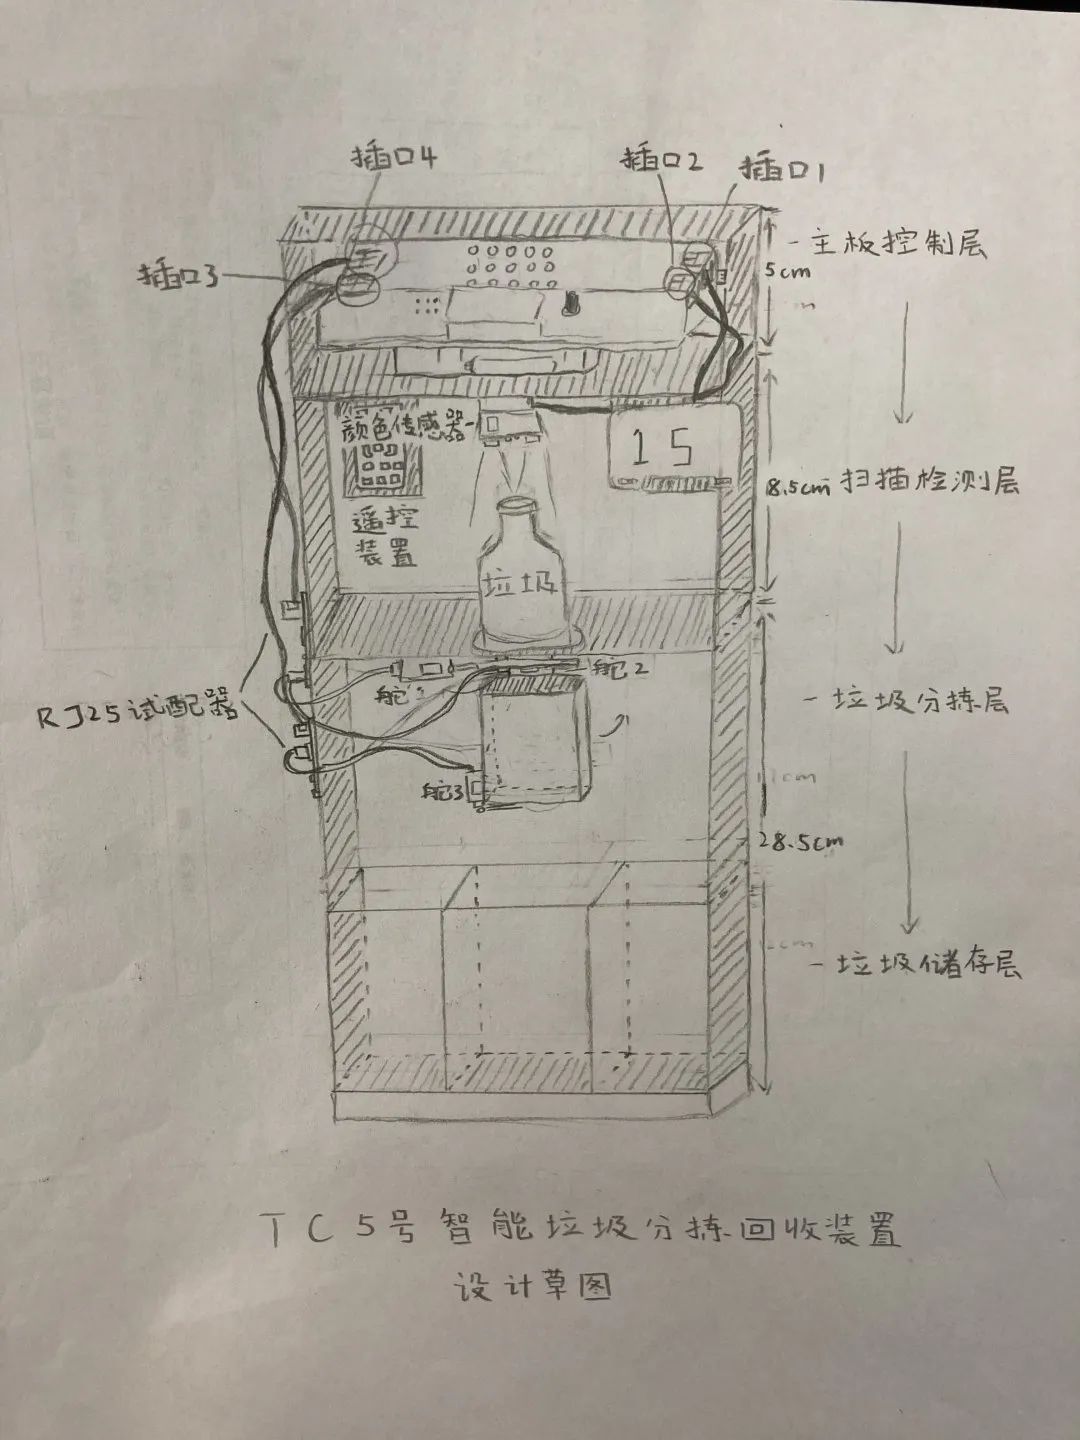 插口4
插口2
插口1
插口3
-主板控制层
5cm
颜色传感器-
15
8.5cm扫描检测层
遥控
装置
垃圾
舵2
舵1
RJ25试配器
-垃圾分拣层
舵3
28.5cm
-垃圾储存层
TC5号智能垃圾分拣回收装置
设计草图